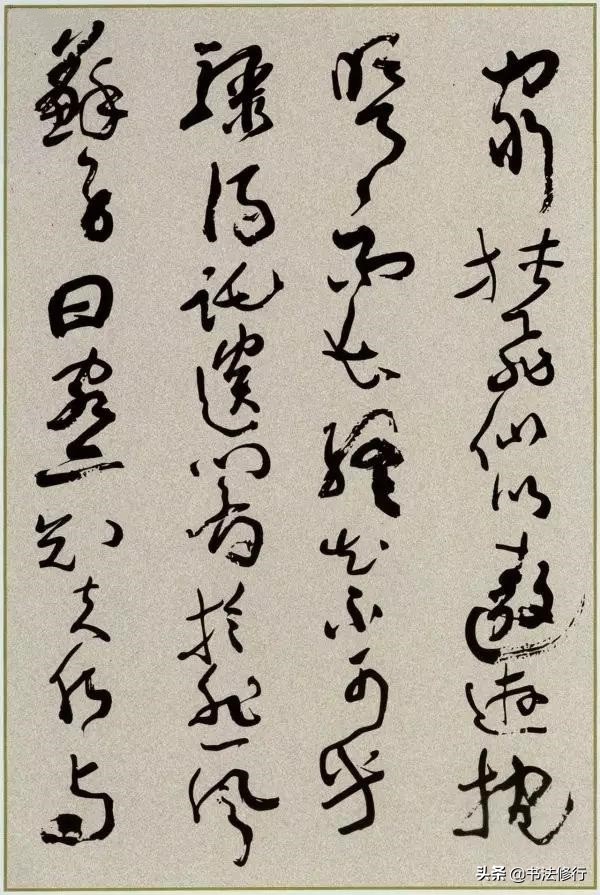 窮挾飛仙以遨遊抱
明月而長終知不可乎
驟得託遺響於悲風
蘇子曰客亦知夫水與
头条 @书法修行